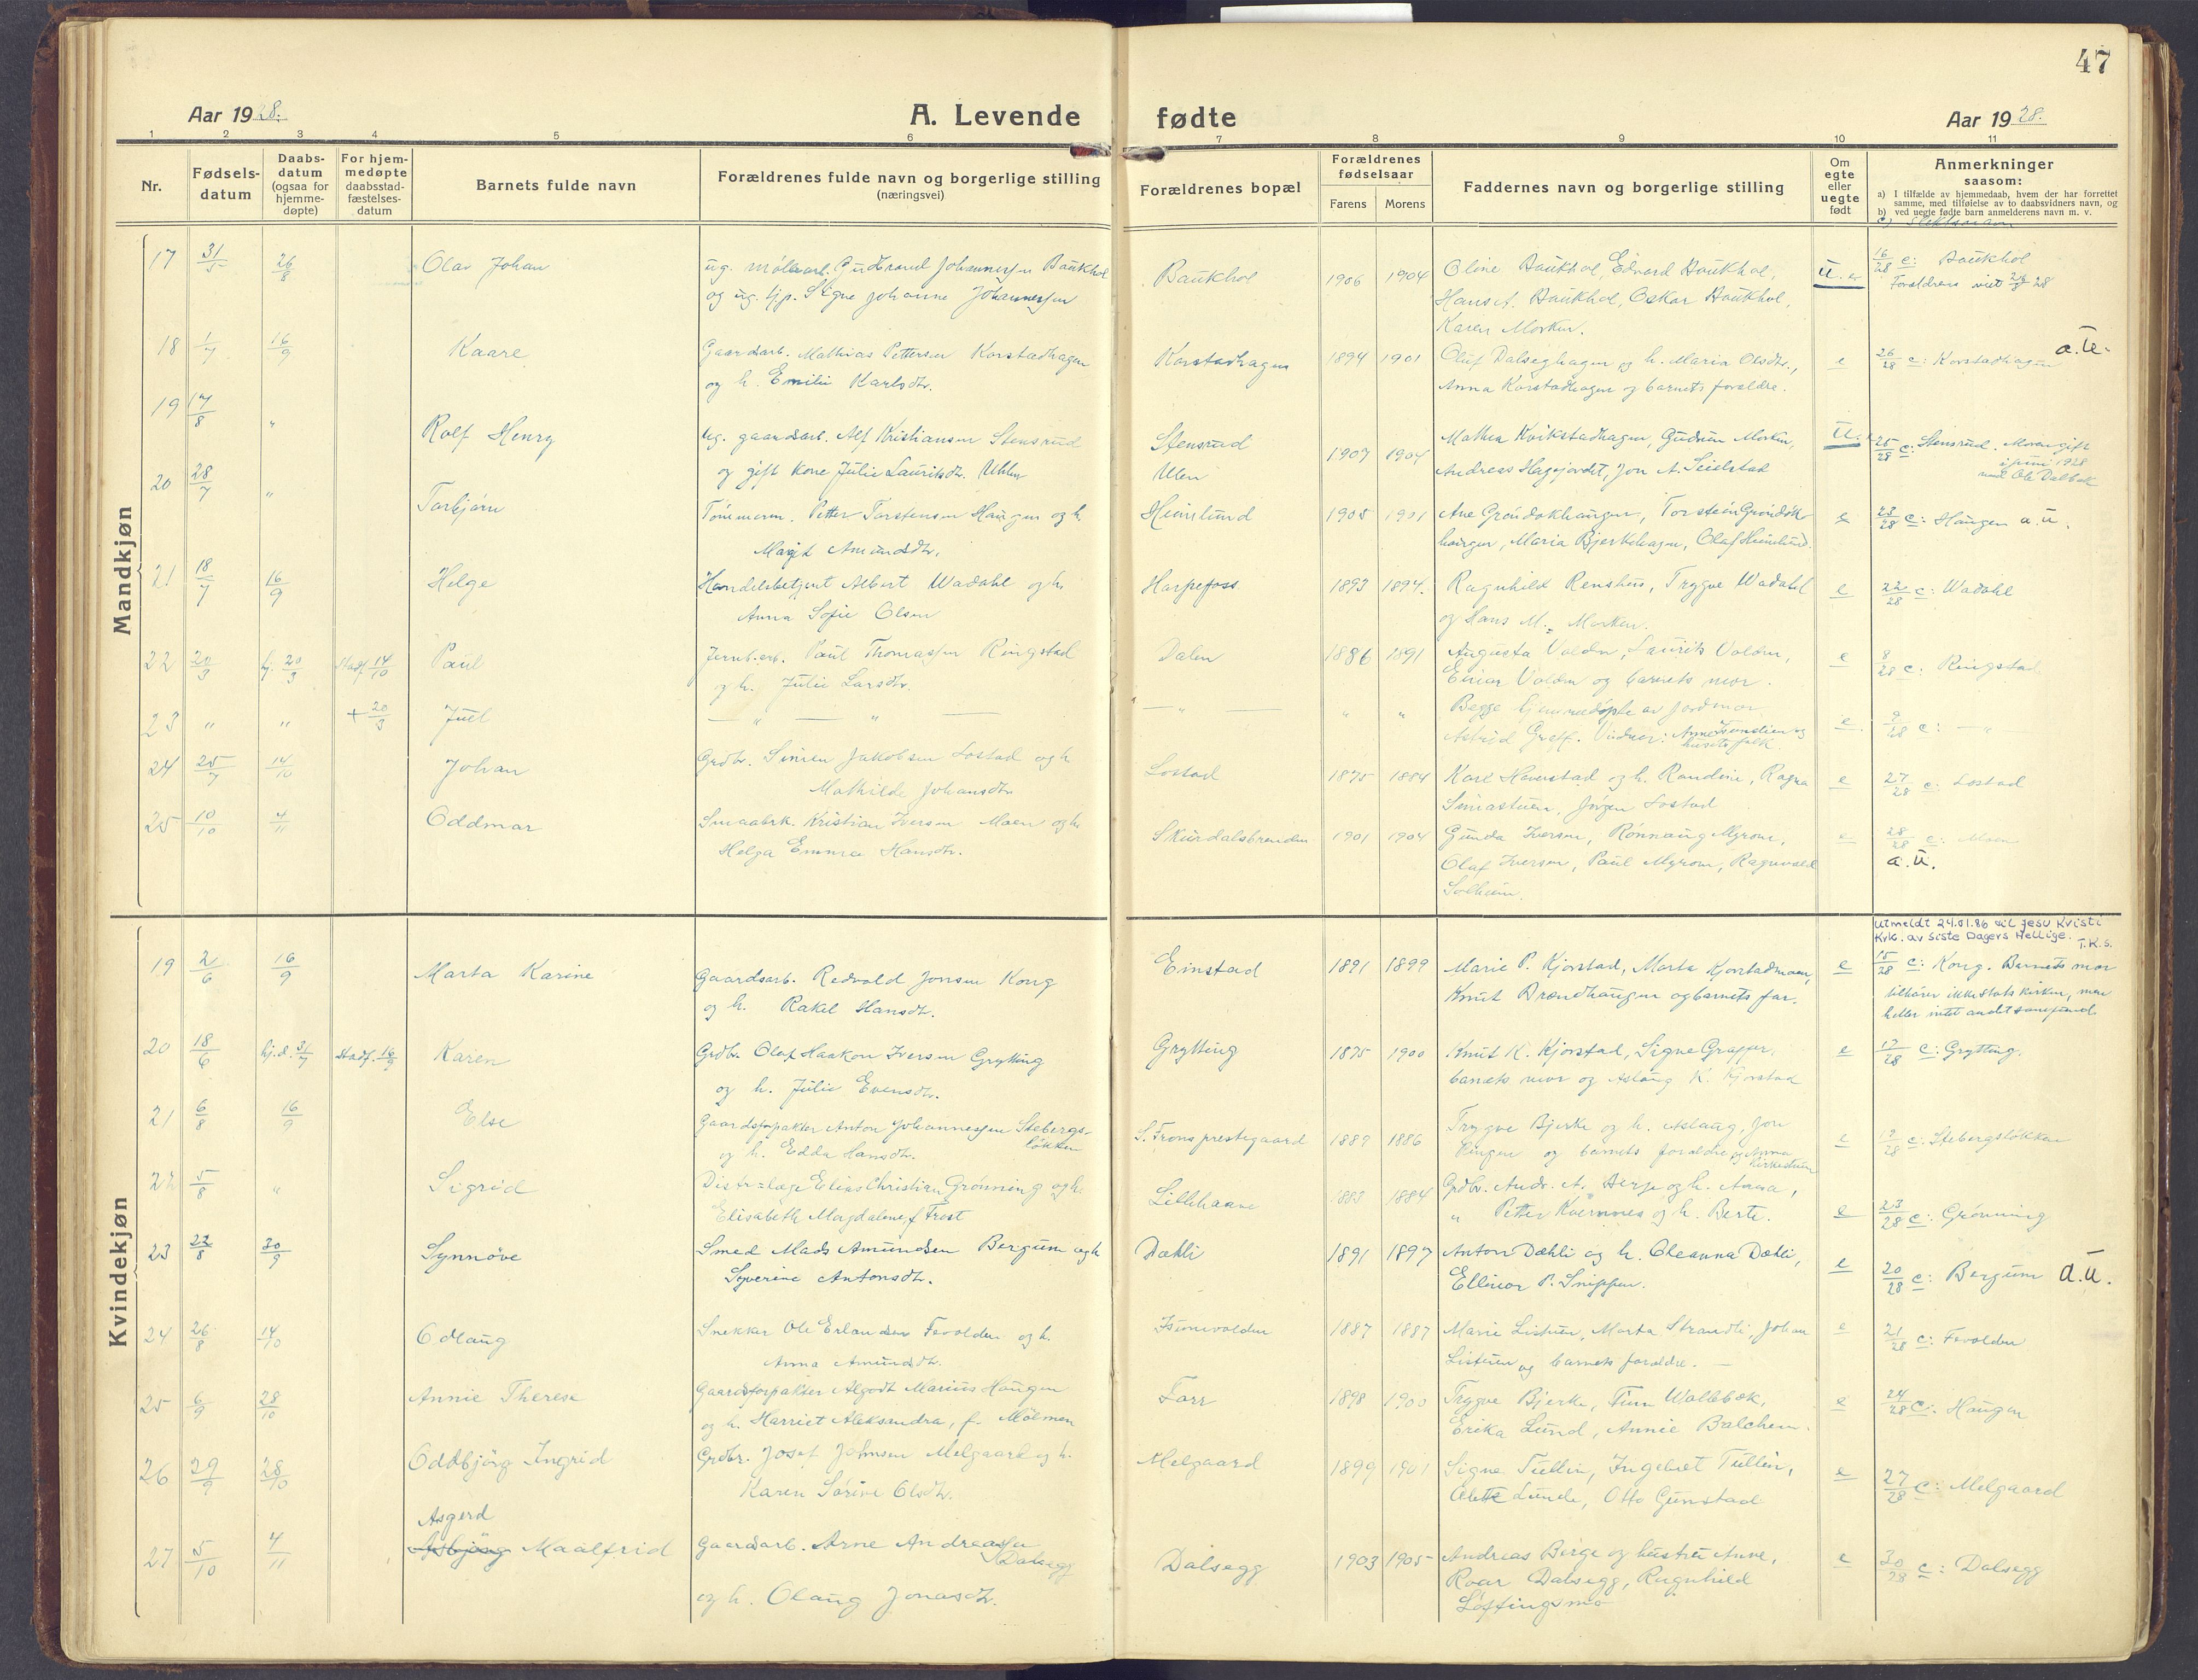 47
Aar 1928.
A. Levende fødte
Aar 1928.
1 2 3 4 5 6 7 8 9 10 11
Nr.
Fødsels-
datum
Daabs-
datum
(ogsaa for
hjemme-
døpte)
For hjem-
medøpte
daabsstad-
fæstelses-
datum
Barnets fulde navn
Forældrenes fulde navn og borgerlige stilling
(næringsvei)
Forældrenes bopæl
Forældrenes
fødselsaar
Farens Morens
Faddernes navn og borgerlige stilling
Om
egte
eller
uegte
født
Anmerkninger
saasom:
a) I tilfælde av hjemmedaab, hvem der har forrettet
samme, med tilføielse av to daabsvidners navn, og
b) ved uegte fødte barn anmelderens navn m. v.
c) Slektsnavn
Mandkjøn
17 31/5 26/8 Olav Johan
ug. Gudbrand Johannessen Baukhol
og ug. tjp. Signe Johanne Johannessen
Baukhol 1906 1904
Oline Baukhol, Edvard Baukhol,
Hans A. Baukhol, Oskar Baukhol,
Karen Morken.
u.
16/28 c: Baukhol
Forældrene viet 28
18 1/7 16/9 Kaare
Gaardsarb. Mathias Pettersen Korstadhagen
og h. Emilie Karlsdtr.
Korstadhagen 1894 1901
Oluf Dalseghagen og h. Maria Olsdtr.,
Anna Korstadhagen og barnets forældre.
e
26/28 c: Korstadhagen a.u.
19 17/8 " Rolf Henry
Ug. gaardsarb. Alf Kristiansen Stensrud
og gift kone Julie Lauritsdtr. Uhlen
Stensrud
Ulen
1907 1904
Mathea Kvikstadhagen, Gudrun Morken,
Andreas Hagejordet, Jon A. Seielstad
u.
25/28 c: Stensrud. Moren gift
i juni 1928
med Ole Dalbak
20 28/7 " Torbjørn
Tømmerm. Petter Torstensen Haugen og h.
Margit Amundsdtr.
Heimlund 1905 1901
Ane Grøndokhaugen, Torstein Grøndok-
haugen, Maria Bjerkehagen, Olaf Heimlund.
e
23/28 c: Haugen a.u.
21 18/7 16/9 Helge
Handelsbetjent Albert Wadahl og h.
Anna Sofie Olsen
Harpefoss 1893 1894.
Ragnhild Renshus, Trygve Wadahl
og Hans M. Morken.
e
22/28 c: Wadahl
22 20/3 hj. 20/3 stadf. 14/10 Paul
Jernb.arb. Paul Thomassen Ringstad
og h. Julie Larsdtr.
Dalen 1886 1891
Augusta Volden, Laurits Volden,
Einar Volden og barnets mor.
e
8/28 c: Ringstad
23 " " + 20/3 Juel
— " — " —
— " — " "
Begge hjemmedøpte av jordmor
Astrid Greff. Vidner: Anne og
husets folk.
e
9/28 c: — "
24 25/7 14/10 Johan
Grdbr. Simen Jakobsen Lostad og h
Mathilde Johansdtr.
Lostad 1875 1884
Karl Haverstad og h. Randine, Ragna
Jørgen Lostad
e
27/28 c: Lostad
25 10/10 4/11 Oddmar
Smaabrk. Kristian Iversen Moen og h.
Helga Emma Hansdtr.
Skurdalsbrenden 1901 1904
Gunda Iversen, Rønnaug Myrom,
Olaf Iversen, Paul Myrom, Ragnvald
Solheim.
e
28/28 c: Moen
a.u.
Kvindekjøn
Utmeldt 24.01.86 til Jesu Kristi
Krk. av Siste Dagers Hellige. T.K.S.
19 2/6 16/9 Marta Karine
Gaardsarb. Redvald Jonsen Kong
og h. Rakel Hansdtr.
Einstad 1891 1899
Marie P. Kjorstad, Marta Kjorstadmoen,
Knut Brændhaugen og barnets far.
e
15/28 c: Kong. Barnets mor
tilhører ikke statskirken, men
heller intet andet samfund.
20 18/6 hj.d. 31/7 stadf. 16/9 Karen
Grdbr. Olaf Haakon Iversen Grytting
og h. Julie Evensdtr.
Grytting 1875 1900
Knut K. Kjorstad, Signe
barnets mor og Aslaug K. Kjorstad
e
17/28 c: Grytting.
21 6/8 16/9 Else
Gaardsforpakter Anton Johannessen Stebergs-
løkken
og h. Edda Hansdtr.
S. Frons prestegaard 1889 1886
Trygve Bjerke og h. Aslaug, Jon
Ringen og barnets forældre og Anna
Kirkestuen
e
19/28 c: Stebergsløkken
22 5/8 " Sigrid
Distr.læge Elias Christian Grønning og h.
Elisabeth Magdalene f. Frost
Lillehaave 1883 1884
Grdbr. Andr. A. Berge og h. Anna,
" Petter Kvernnes og h. Berte.
e
23/28 c: Grønning
23 22/8 30/9 Synnøve
Smed Mads Amundsen Bergum og h
Syverine Antonsdtr.
Dæhli 1891 1897
Anton Dæhli og h. Oleanna Dæhli,
Ellinor P. Snippen.
e
20/28 c: Bergum a.u.
24 26/8 14/10 Odlaug
Snekker Ole Erlandsen Fevolden og h.
Anna Amundsdtr.
1887 1887
Marie Listuen, Marta Strandli, Johan
Listuen og barnets forældre. —
e
21/28 c: Fevolden
25 6/9 28/10 Annie Therese
Gaardsforpakter Algodt Marius Haugen
og h. Harriet Aleksandra, f. Mølmen
Forr 1898 1900
Trygve Bjerke, Finn Wolleback,
Erika Lund, Annie Balchem.
e
24/28 c: Haugen
26 29/9 28/10 Oddbjørg Ingrid
Grdbr. Josef Johnsen Melgaard og h.
Karen Sørine Olsdtr.
Melgaard 1899 1901
Signe Tullin, Ingebret Tullin,
Alette Lunde, Otto Gunstad
e
27/28 c: Melgaard
Asgerd
27 5/10 4/11 Asbjørg Maalfrid
Gaardsarb. Arne Andreassen
Dalsegg
og h. Olaug Jonasdtr.
Dalsegg 1903 1905
Andreas Berge og hustru Anne,
Roar Dalsegg, Ragnhild
Løftingsmo
e
30/28 c: Dalsegg